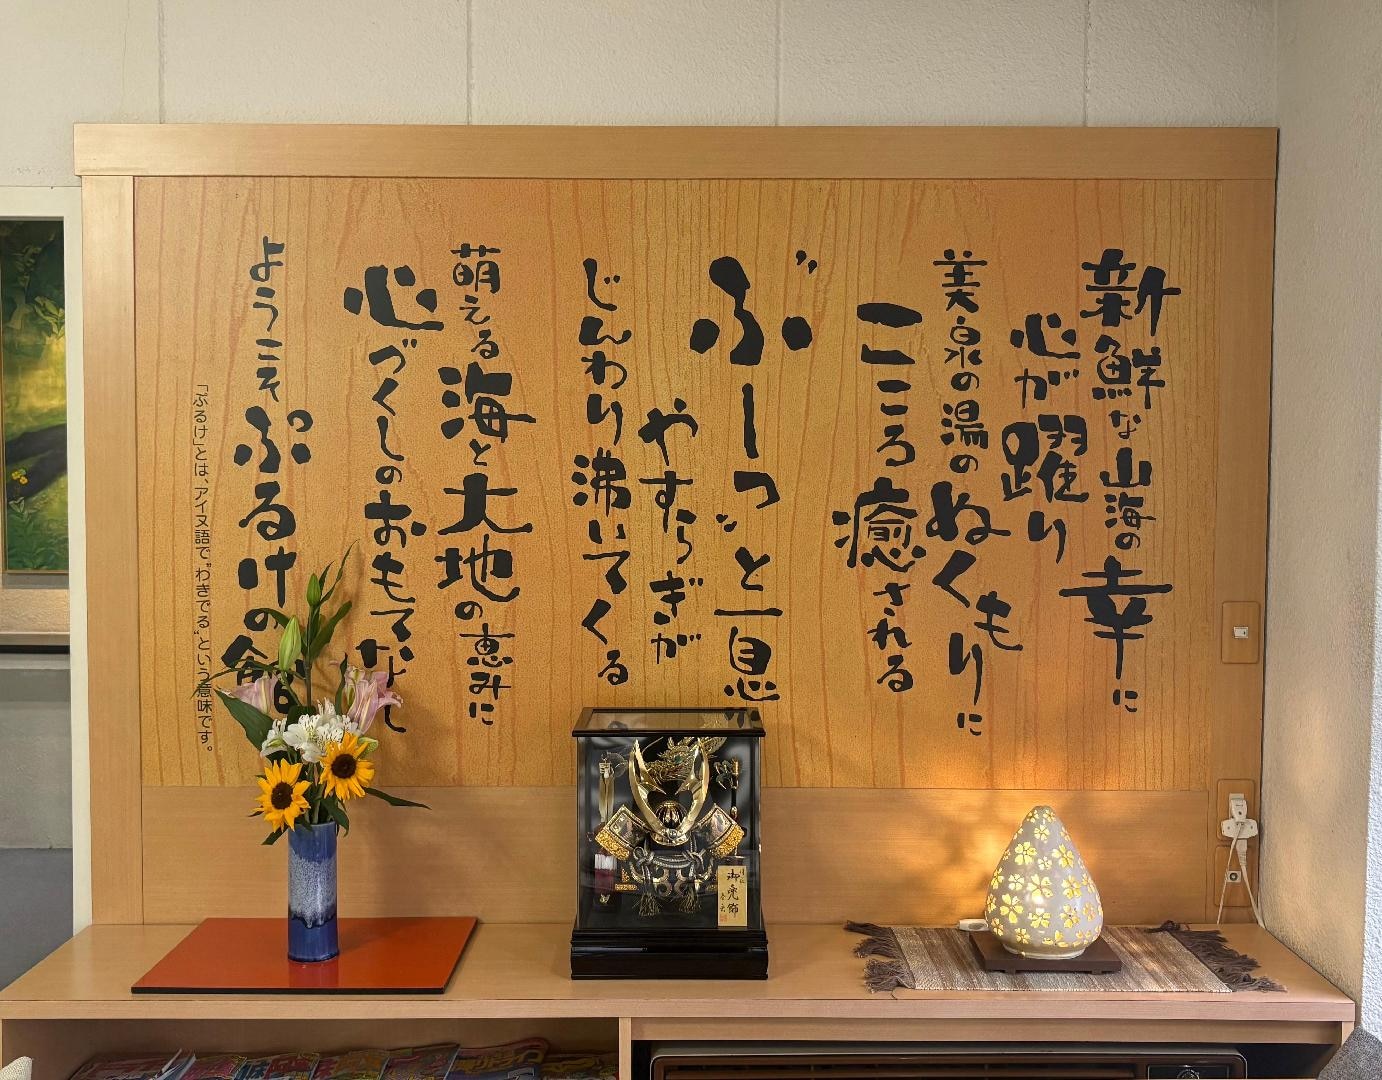 新鮮な山海の幸に
心が躍り
美泉の湯のぬくもりに
こころ癒される
ぷーっと一息
やすらぎが
じんわり沸いてくる
萌える海と大地の恵みに
心づくしのおもてなし
ようこそぷるけの館
「ぷるけ」とは、アイヌ語で“わきでる”という意味です。
御兜飾